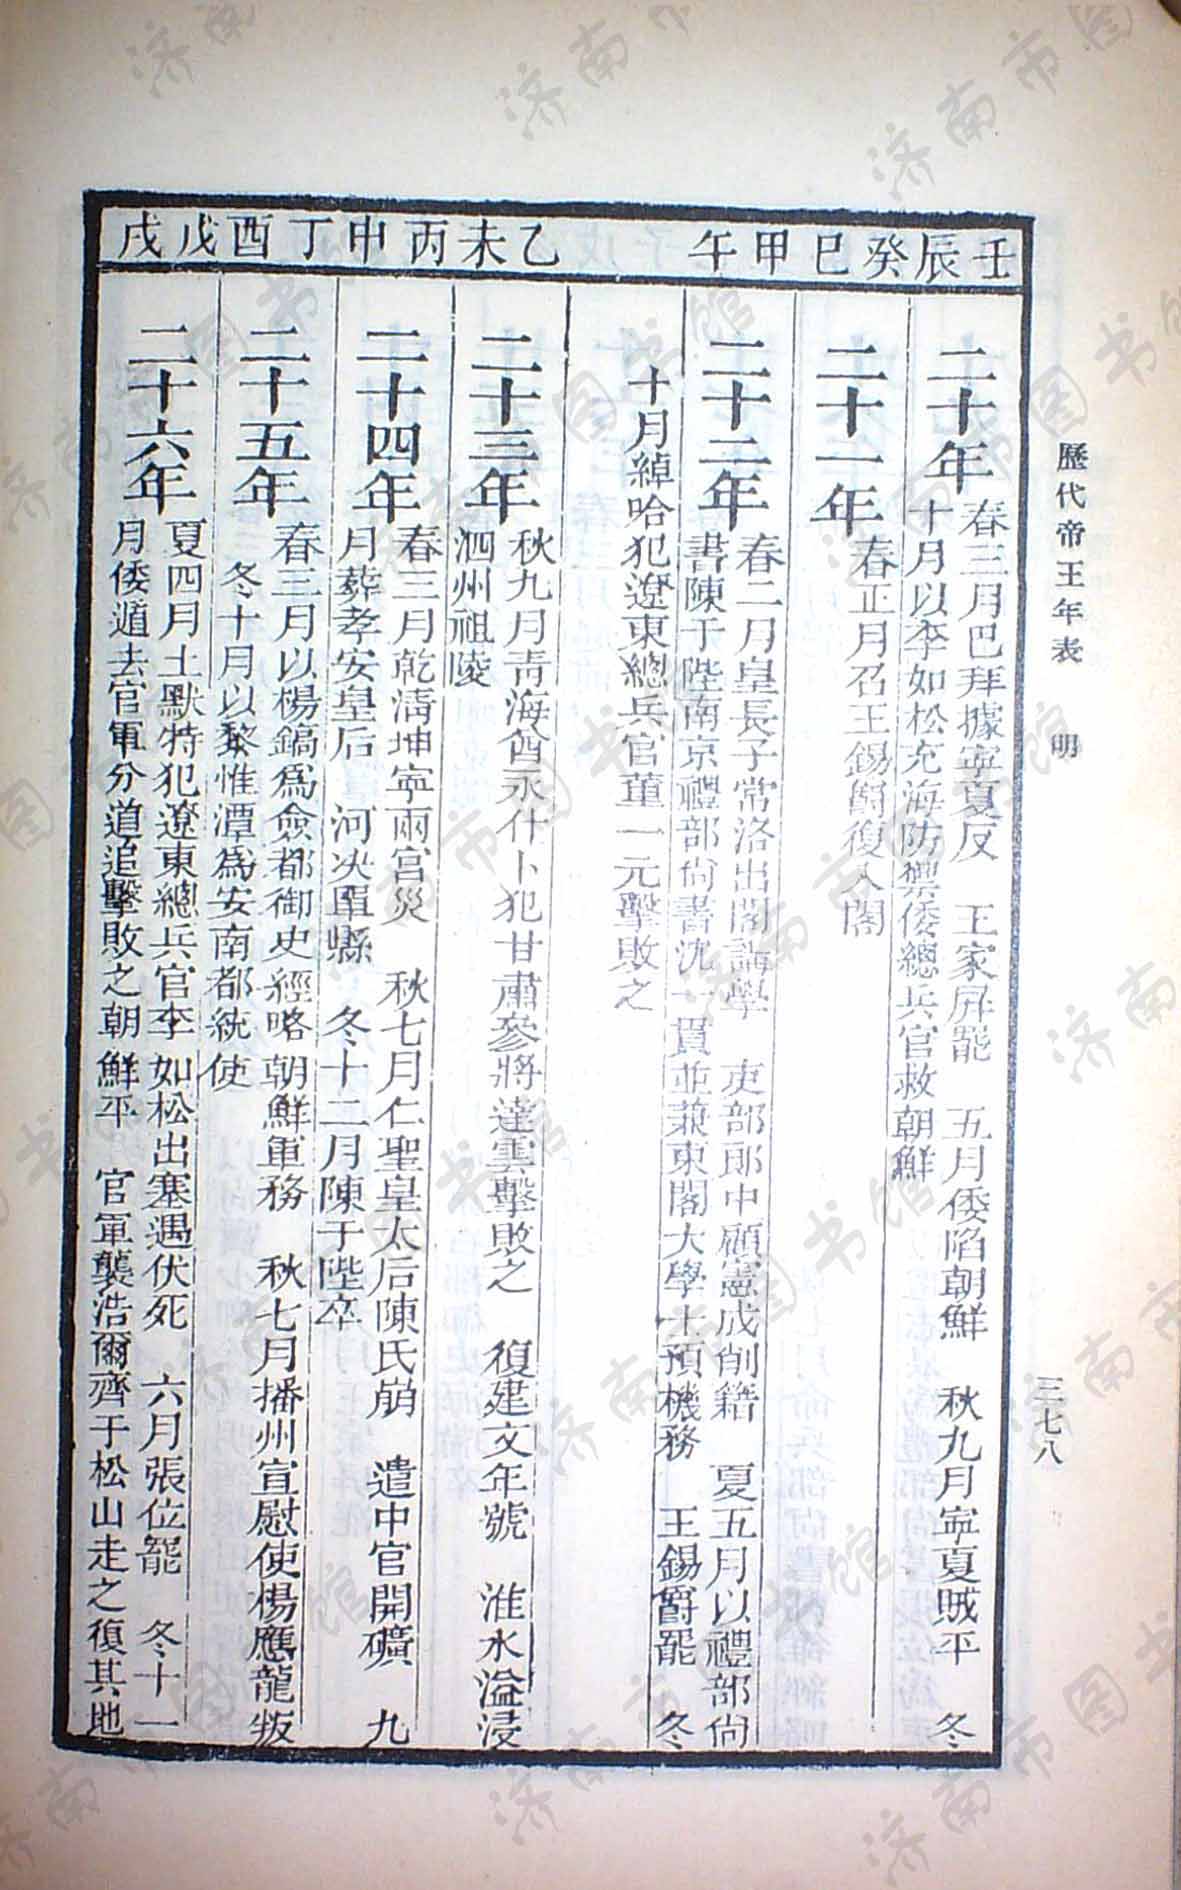 歷代帝王年表　明　三七八
壬辰　癸巳　甲午　乙未　丙申　丁酉　戊戌
二十年
春三月巴拜據寧夏反　王家屏罷　五月倭陷朝鮮　秋九月寧夏賊平　冬
十月以李如松充海防禦倭總兵官救朝鮮
二十一年
春正月召王錫爵復入閣
二十二年
春二月皇長子常洛出閣講學　吏部郎中顧憲成削籍　夏五月以禮部尚
書陳于陛南京禮部尚書沈一貫並兼東閣大學士預機務　王錫爵罷　冬
十月綽哈犯遼東總兵官董一元擊敗之
二十三年
秋九月青海酋永什卜犯甘肅參將達雲擊敗之　復建文年號　淮水溢浸
泗州祖陵
二十四年
春三月乾淸坤寧兩宮災　秋七月仁聖皇太后陳氏崩　遣中官開礦　九
月葬孝安皇后　河決單縣　冬十二月陳于陛卒
二十五年
春三月以楊鎬爲僉都御史經略朝鮮軍務　秋七月播州宣慰使楊應龍叛
冬十月以黎惟潭爲安南都統使
二十六年
夏四月土默特犯遼東總兵官李如松出塞遇伏死　六月張位罷　冬十一
月倭遁去官軍分道追擊敗之朝鮮平　官軍襲浩爾齊于松山走之復其地
济南市图书馆